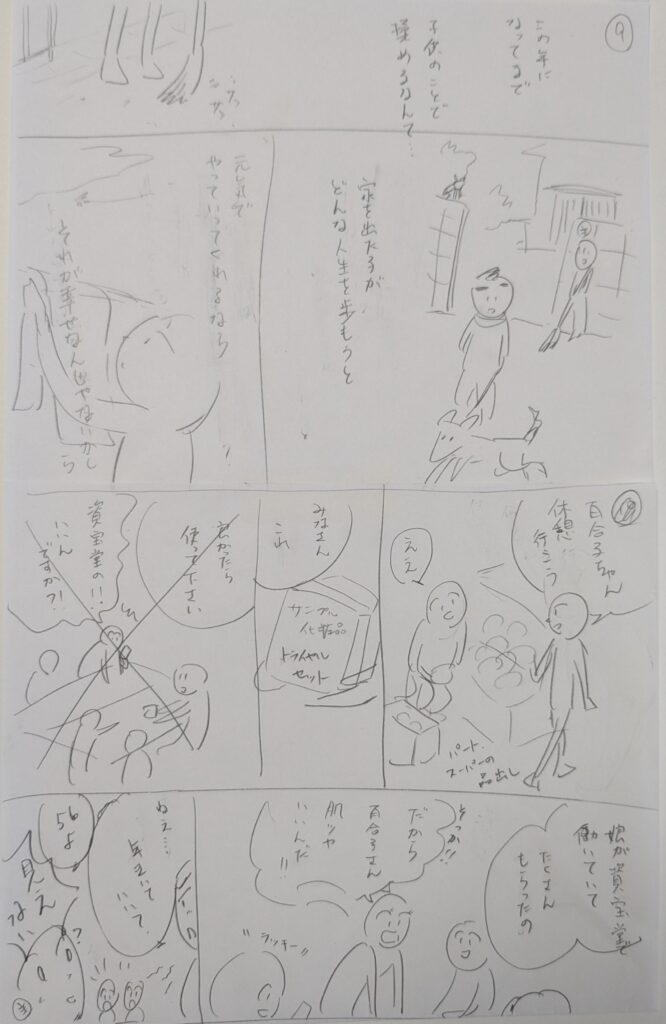 9
この年に
なってまで
子供のことで
揉めるなんて…
家を出た子が
どんな人生を歩もうと
元気で
やっていってくれるなら
それが幸せなんじゃないかしら
百合子ちゃん
休憩に
行こう
ええ
パート
スーパーの
品出し
みなさん
これ
サンプル
化粧品
トライアル
セット
良かったら
使って下さい
資宝堂の!!
いいん
ですか?!
娘が資宝堂で
働いていて
たくさん
もらったの
そっか!!
だから
百合子さん
肌ツヤ
いいんだ!!
ラッキー
ねえ…
年きいて
いい?
56よ
見えない